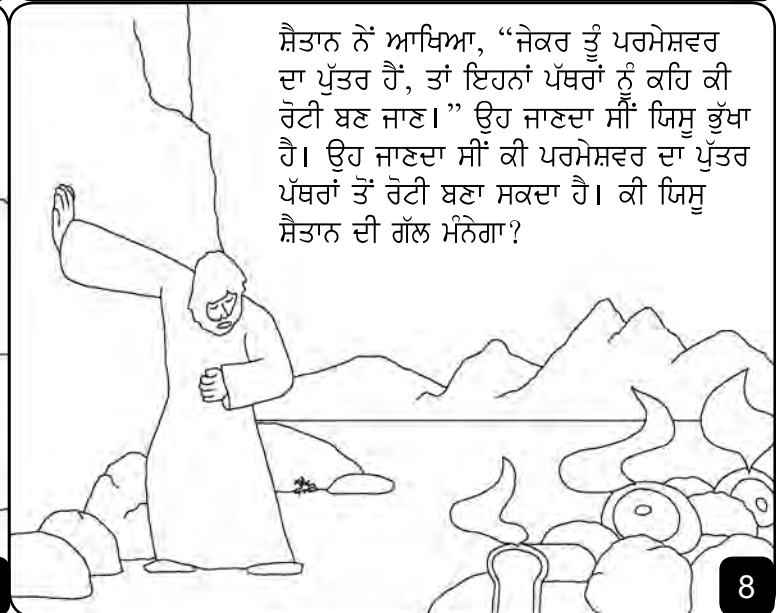 ਸ਼ੈਤਾਨ ਨੇਂ ਆਖਿਆ, “ਜੇਕਰ ਤੂੰ ਪਰਮੇਸ਼ਵਰ
ਦਾ ਪੁੱਤਰ ਹੈਂ, ਤਾਂ ਇਹਨਾਂ ਪੱਥਰਾਂ ਨੂੰ ਕਹਿ ਕੀ
ਰੋਟੀ ਬਣ ਜਾਣ।” ਉਹ ਜਾਣਦਾ ਸੀਂ ਯਿਸੂ ਭੁੱਖਾ
ਹੈ। ਉਹ ਜਾਣਦਾ ਸੀਂ ਕੀ ਪਰਮੇਸ਼ਵਰ ਦਾ ਪੁੱਤਰ
ਪੱਥਰਾਂ ਤੋਂ ਰੋਟੀ ਬਣਾ ਸਕਦਾ ਹੈ। ਕੀ ਯਿਸੂ
ਸ਼ੈਤਾਨ ਦੀ ਗੱਲ ਮੰਨੇਗਾ?
8